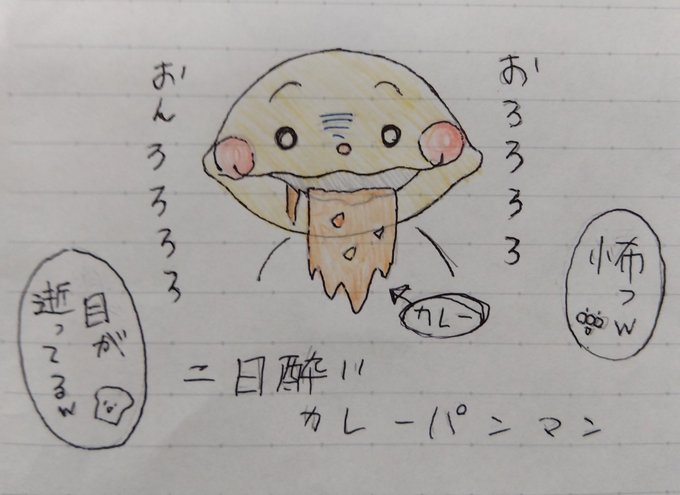 おろろろろ
おんろろろろ
怖っw
カレー
目が
逝ってるw
二日酔い
カレーパンマン